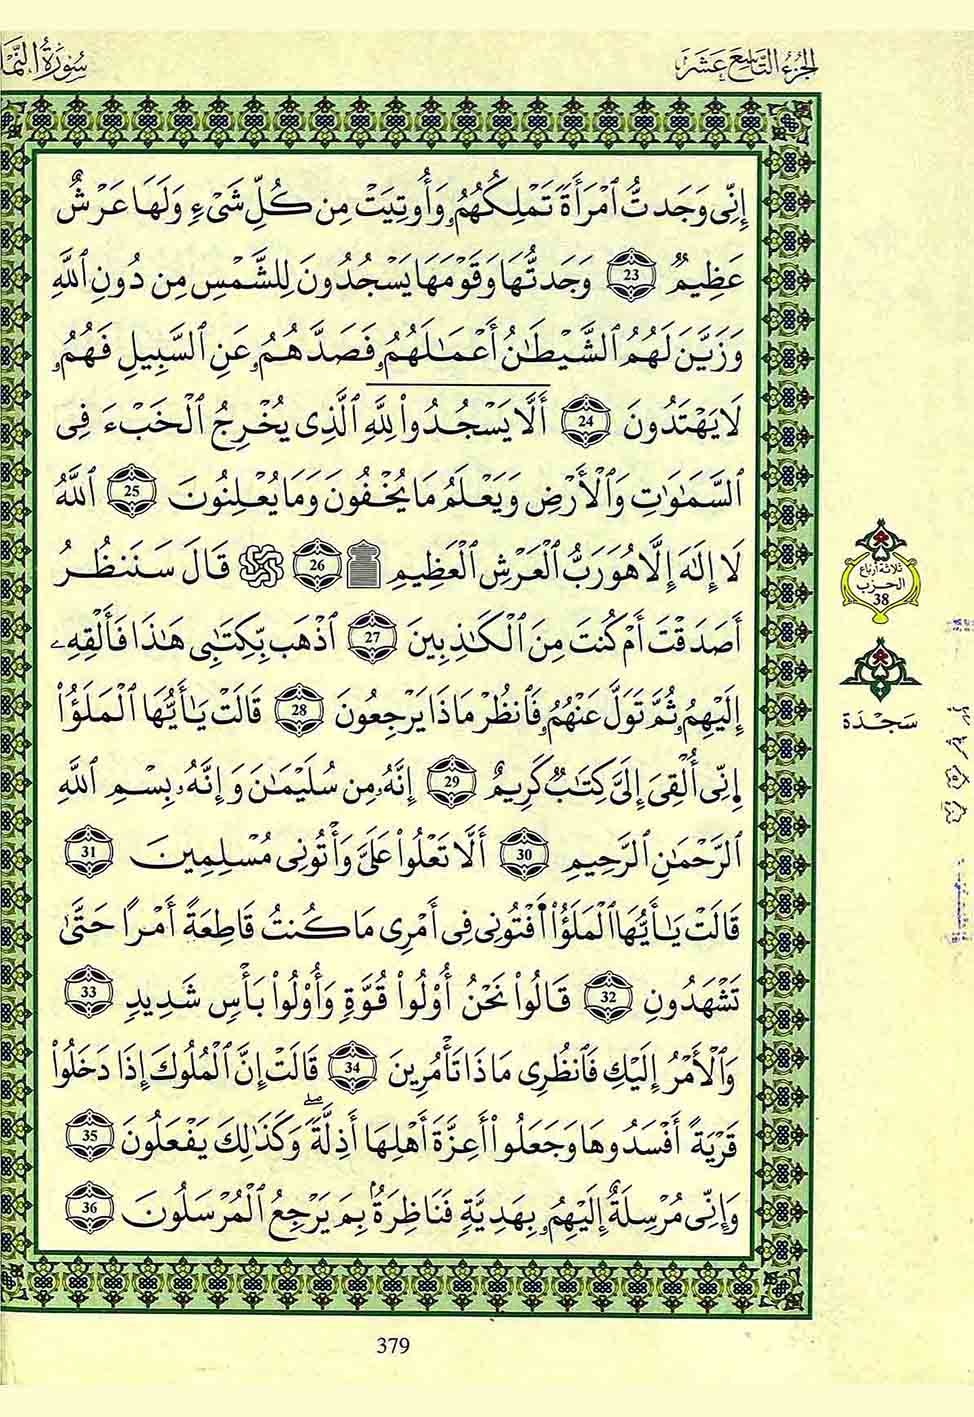 الجزء التاسع عشر
سورة النمل
إِنِّى وَجَدتُّ ٱمْرَأَةً تَمْلِكُهُمُۥ وَأُوتِيَتْ مِن كُلِّ شَىْءٍ وَلَهَا عَرْشٌ
عَظِيمٌ 23 وَجَدتُّهَا وَقَوْمَهَا يَسْجُدُونَ لِلشَّمْسِ مِن دُونِ ٱللَّهِ
وَزَيَّنَ لَهُمُ ٱلشَّيْطَٰنُ أَعْمَٰلَهُمُۥ فَصَدَّهُمُۥ عَنِ ٱلسَّبِيلِ فَهُمُۥ
لَا يَهْتَدُونَ 24 أَلَّا يَسْجُدُوا۟ لِلَّهِ ٱلَّذِى يُخْرِجُ ٱلْخَبْءَ فِى
ٱلسَّمَٰوَٰتِ وَٱلْأَرْضِ وَيَعْلَمُ مَا يُخْفُونَ وَمَا يُعْلِنُونَ 25 ٱللَّهُ
لَا إِلَٰهَ إِلَّا هُوَ رَبُّ ٱلْعَرْشِ ٱلْعَظِيمِ ۩ 26 ۞ قَالَ سَنَنظُرُ
أَصَدَقْتَ أَمْ كُنتَ مِنَ ٱلْكَٰذِبِينَ 27 ٱذْهَب بِّكِتَٰبِى هَٰذَا فَأَلْقِهِۦ
إِلَيْهِمُۥ ثُمَّ تَوَلَّ عَنْهُمُۥ فَٱنظُرْ مَاذَا يَرْجِعُونَ 28 قَالَتْ يَٰأَيُّهَا ٱلْمَلَؤُا۟
إِنِّى أُلْقِىَ إِلَىَّ كِتَٰبٌ كَرِيمٌ 29 إِنَّهُۥ مِن سُلَيْمَٰنَ وَإِنَّهُۥ بِسْمِ ٱللَّهِ
ٱلرَّحْمَٰنِ ٱلرَّحِيمِ 30 أَلَّا تَعْلُوا۟ عَلَىَّ وَأْتُونِى مُسْلِمِينَ 31
قَالَتْ يَٰأَيُّهَا ٱلْمَلَؤُا۟ أَفْتُونِى فِى أَمْرِى مَا كُنتُ قَاطِعَةً أَمْرًا حَتَّىٰ
تَشْهَدُونِ 32 قَالُوا۟ نَحْنُ أُو۟لُوا۟ قُوَّةٍ وَأُو۟لُوا۟ بَأْسٍ شَدِيدٍ 33
وَٱلْأَمْرُ إِلَيْكِ فَٱنظُرِى مَاذَا تَأْمُرِينَ 34 قَالَتْ إِنَّ ٱلْمُلُوكَ إِذَا دَخَلُوا۟
قَرْيَةً أَفْسَدُوهَا وَجَعَلُوا۟ أَعِزَّةَ أَهْلِهَا أَذِلَّةً ۖ وَكَذَٰلِكَ يَفْعَلُونَ 35
وَإِنِّى مُرْسِلَةٌ إِلَيْهِمُۥ بِهَدِيَّةٍ فَنَاظِرَةٌۢ بِمَ يَرْجِعُ ٱلْمُرْسَلُونَ 36
ثلاثة أرباع
الحزب
38
سَجْدَة
379